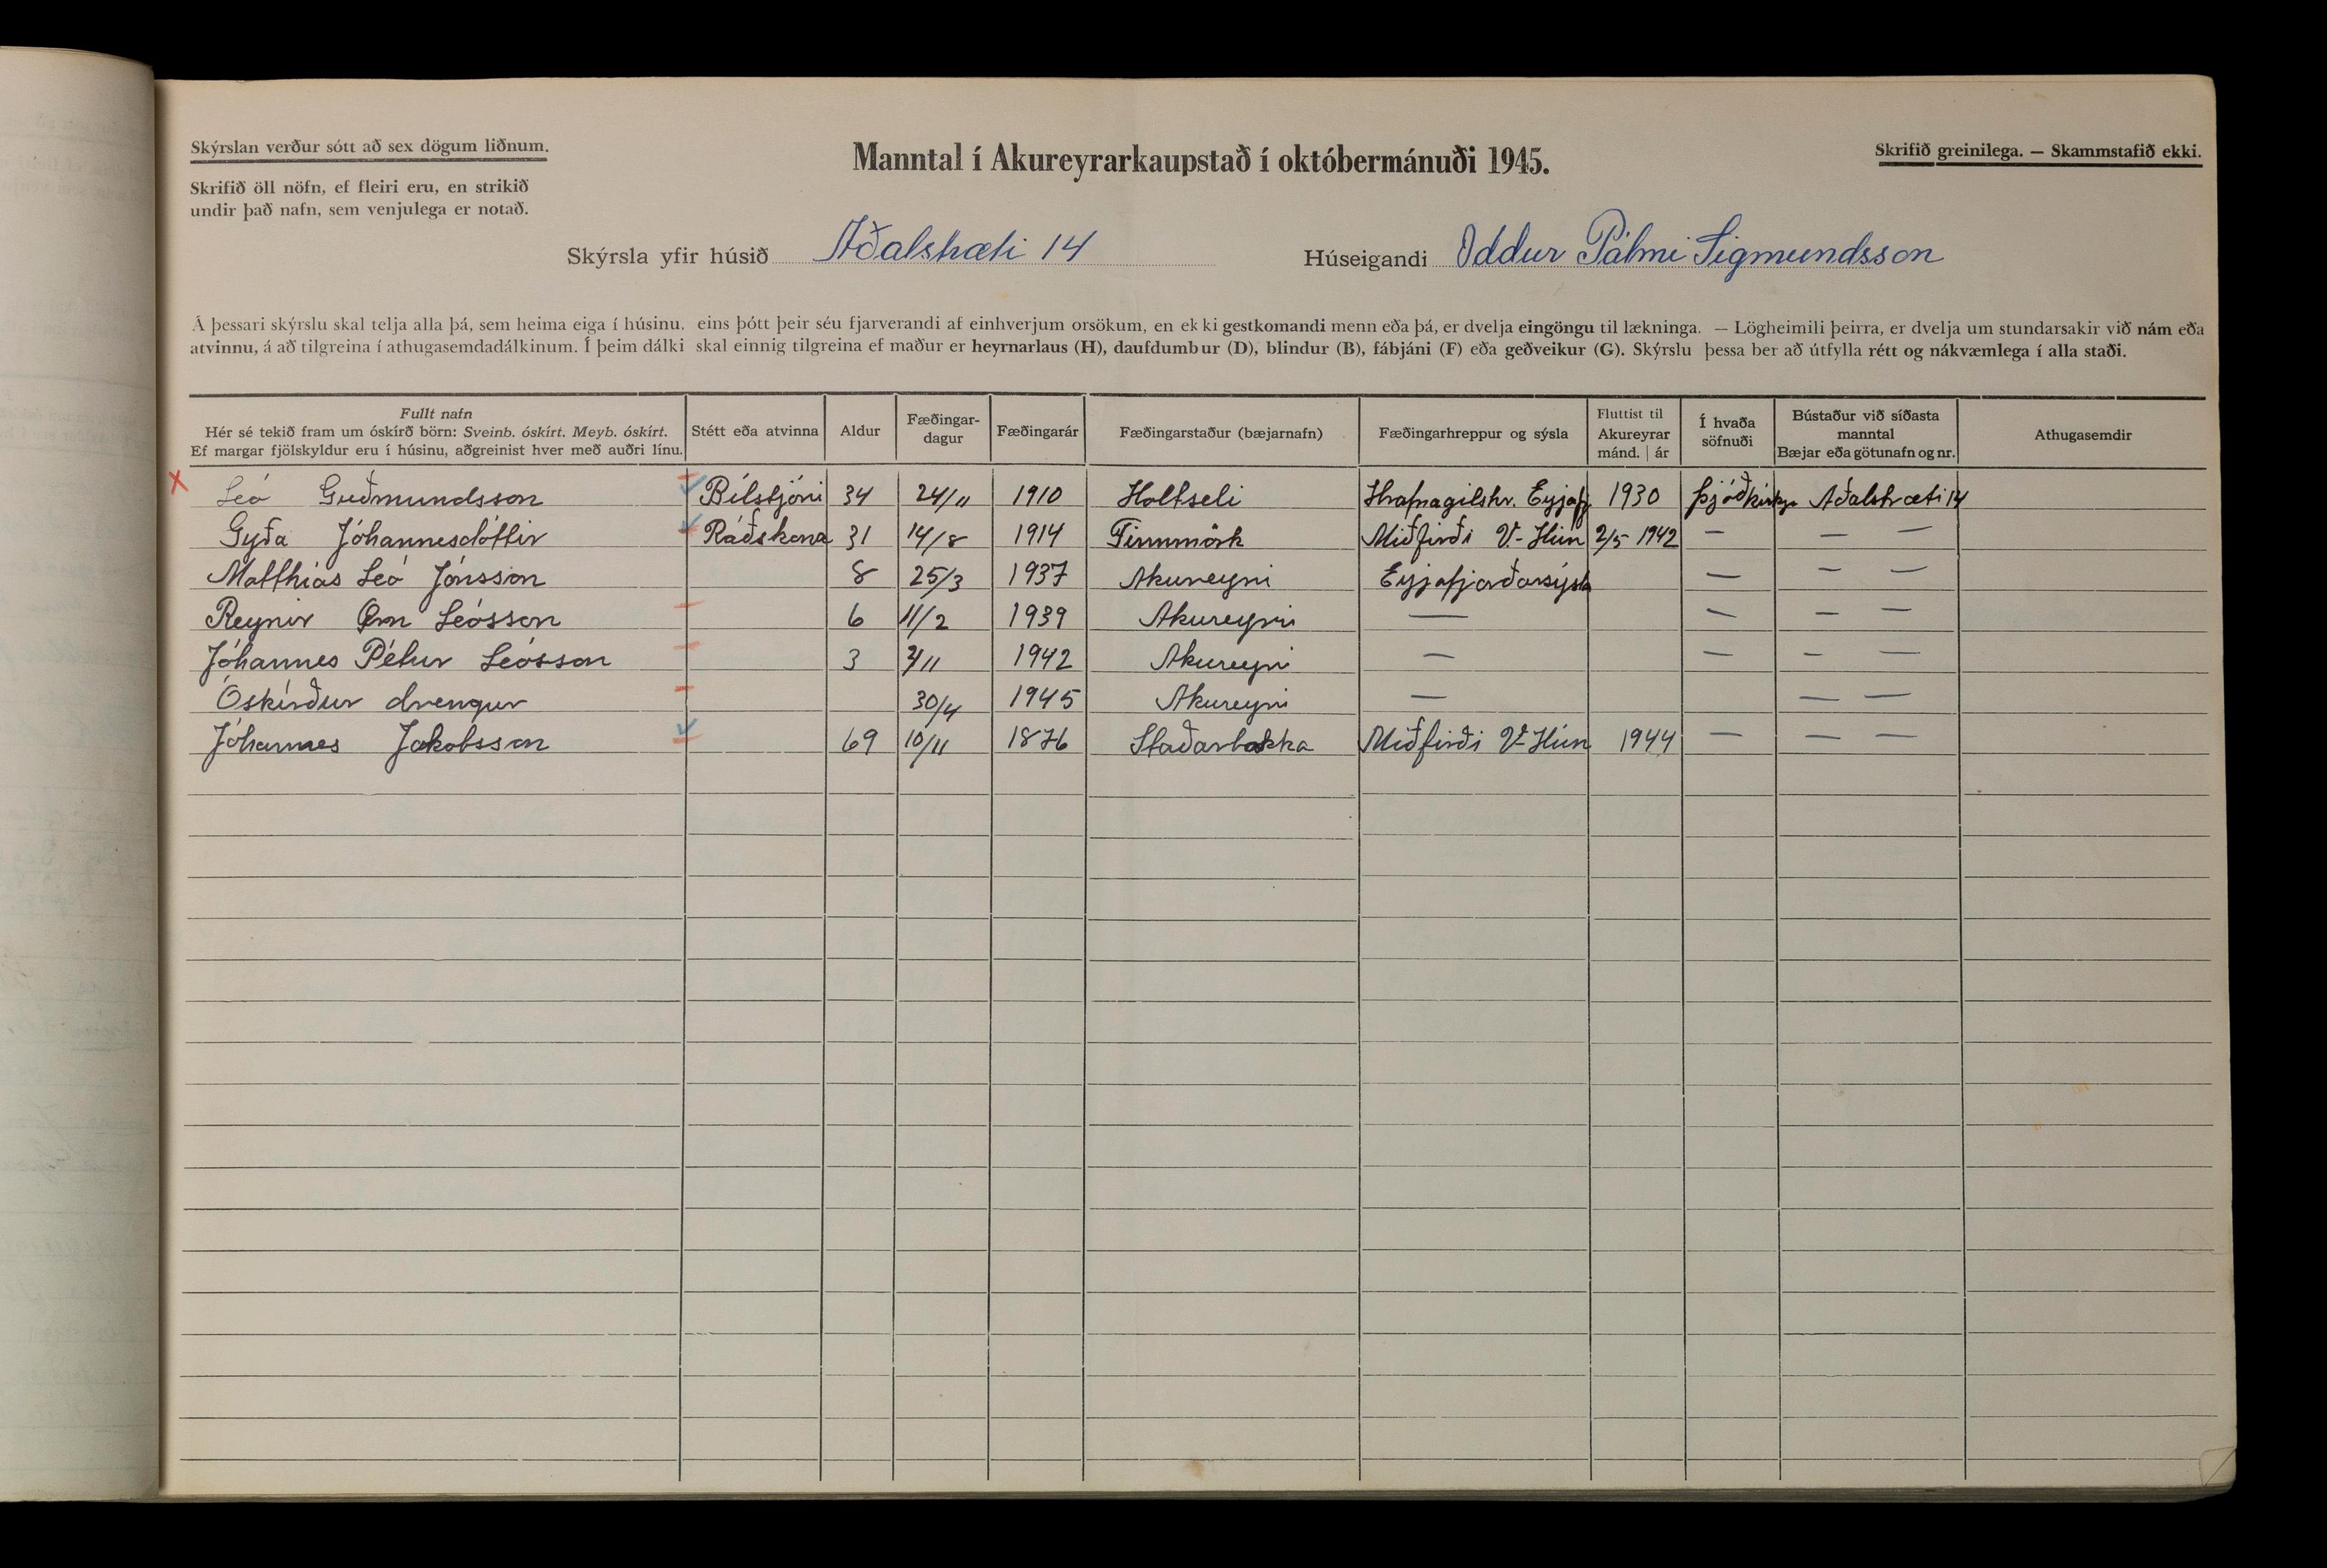 Skýrslan verður sótt að sex dögum liðnum.
Skrifið öll nöfn, ef fleiri eru, en strikið
undir það nafn, sem venjulega er notað.
Manntal í Akureyrarkaupstað í októbermánuði 1945.
Skrifið greinilega. — Skammstafið ekki.
Skýrsla yfir húsið Aðalstræti 14 Húseigandi Oddur Pálmi Sigmundsson
Á þessari skýrslu skal telja alla þá, sem heima eiga í húsinu, eins þótt þeir séu fjarverandi af einhverjum orsökum, en ekki gestkomandi menn eða þá, er dvelja eingöngu til lækninga. — Lögheimili þeirra, er dvelja um stundarsakir við nám eða
atvinnu, á að tilgreina í athugasemdadálkinum. Í þeim dálki skal einnig tilgreina ef maður er heyrnarlaus (H), daufdumbur (D), blindur (B), fábjáni (F) eða geðveikur (G). Skýrslu þessa ber að útfylla rétt og nákvæmlega í alla staði.
Fullt nafn
Hér sé tekið fram um óskírð börn: Sveinb. óskírt. Meyb. óskírt.
Ef margar fjölskyldur eru í húsinu, aðgreinist hver með auðri línu.
Stétt eða atvinna
Aldur
Fæðingar-
dagur
Fæðingarár
Fæðingarstaður (bæjarnafn)
Fæðingarhreppur og sýsla
Fluttist til
Akureyrar
mánd. | ár
Í hvaða
söfnuði
Bústaður við síðasta
manntal
Bæjar eða götunafn og nr.
Athugasemdir
Leó Guðmundsson Bílstjóri 34 24/11 1910 Holtseli Hrafnagilshr. Eyjafj 1930 Þjóðkirkju Aðalstræti 14
Gyða Jóhannesdóttir Ráðskona 31 14/8 1914 Finnmörk Miðfirði V-Hún 2/5 1942 — — —
Matthías Leó Jónsson 8 25/3 1937 Akureyri Eyjafjarðarsýsla — — —
Reynir Örn Leósson 6 11/2 1939 Akureyri — — — —
Jóhannes Pétur Leósson 3 /11 1942 Akureyri — — — —
Óskírður drengur 30/4 1945 Akureyri — — —
Jóhannes Jakobsson 69 10/11 1876 Staðarbakka Miðfirði V-Hún 1944 — — —